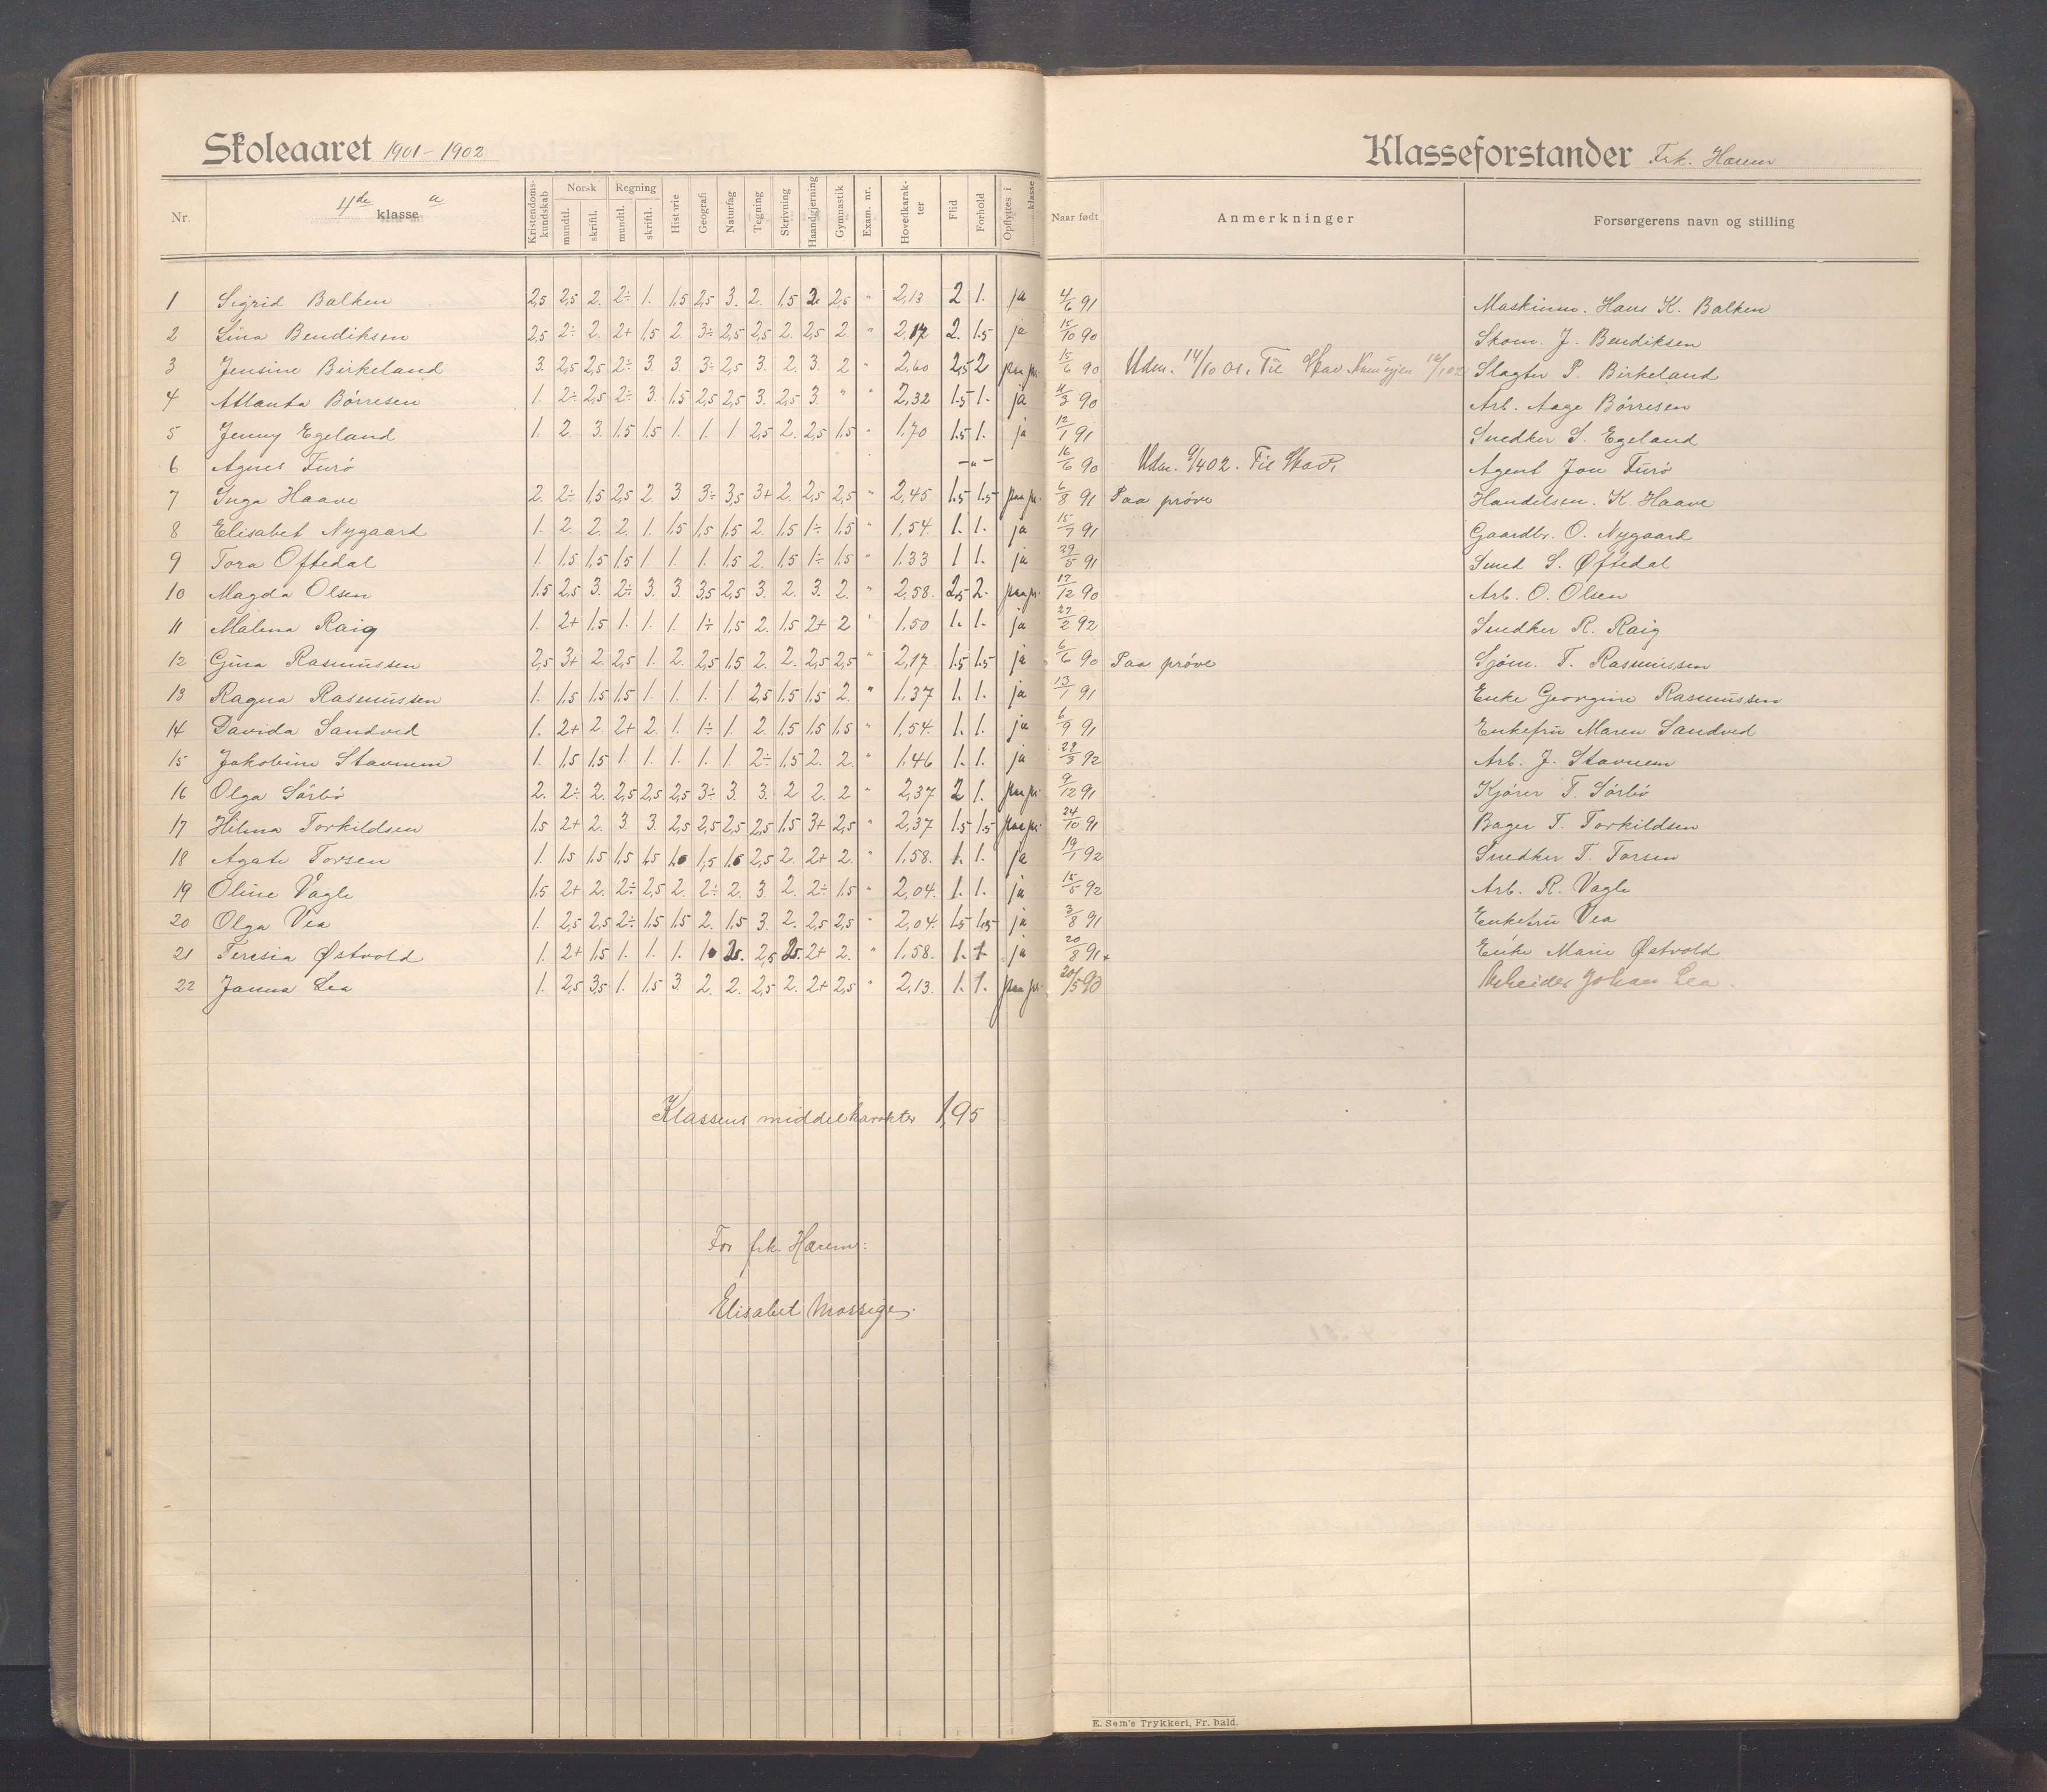 Skoleaaret 1901-1902
Klasseforstander Frk. Harem
Nr. 4de klasse a Kristendomskundskab Norsk mundtl. skriftl. Regning mundtl. skriftl. Historie Geografi Naturfag Tegning Skrivning Haandgjerning Gymnastik Exam. nr. Hovedkarakter Flid Forhold Opflyttes i klasse Naar født Anmerkninger Forsørgerens navn og stilling
1 Sigrid Balken 2,5 2,5 2. 2÷ 1. 1,5 2,5 3. 2. 1,5 2 2,5 " 2,13 2 1. ja 4/6 91 Maskinm. Hans K. Balken
2 Lina Bendiksen 2,5 2÷ 2. 2+ 1,5 2. 3÷ 2,5 2,5 2. 2,5 2 " 2,17 2. 1.5 ja 15/10 90 Skom. J. Bendiksen
3 Jensine Birkeland 3. 2,5 2,5 2÷ 3. 3. 3÷ 2,5 3. 2. 3. 2 " 2,60 2,5 2 paa pr. 15/6 90 Udm. 14/10 01. Til Slagter P. Birkeland
4 Atlanta Børresen 1. 2÷ 2,5 2÷ 3. 1,5 2,5 2,5 3. 2,5 3. " " 2,32 1.5 1. ja 11/3 90 Arb. Aage Börresen
5 Jenny Egeland 1. 2. 3. 1.5 1,5 1. 1. 1. 2,5 2. 2,5 1,5 " 1,70 1.5 1. ja 12/1 91 Snedker S. Egeland
6 Agnes Furö - " - 16/6 90 Udm. 9/4 02. Til Agent Jon Furö
7 Inga Haave 2. 2÷ 1,5 2,5 2. 3 3÷ 3,5 3+ 2. 2,5 2,5 " 2,45 1.5 1.5 paa pr. 6/8 91 Paa prøve Handelsm. K. Haave
8 Elisabet Nygaard 1. 2. 2. 2. 1. 1,5 1,5 1,5 2. 1,5 1÷ 1,5 " 1,54. 1. 1. ja 15/7 91 Gaardbr. O. Nygaard
9 Tora Oftedal 1. 1,5 1,5 1,5 1. 1. 1. 1,5 2. 1,5 1÷ 1,5 " 1.33 1 1. ja 29/5 91 Smed S. Øftedal
10 Magda Olsen 1.5 2,5 3. 2÷ 3. 3. 3,5 2,5 3. 2. 3. 2. " 2,58. 2,5 2. paa pr. 17/12 90 Arb. O. Olsen
11 Malena Raig 1. 2+ 1,5 1. 1. 1. 1÷ 1,5 2. 1,5 2+ 2 " 1,50 1. 1. ja 27/2 92 Snedker R. Raig
12 Gina Rasmussen 2,5 3+ 2. 2,5 1. 2. 2,5 1,5 2. 2. 2,5 2,5 " 2,17 1.5 1.5 ja 6/6 90 Paa prøve Sjøm. T. Rasmussen
13 Ragna Rasmussen 1. 1,5 1,5 1,5 1. 1. 1. 1. 2,5 1,5 1,5 2. " 1,37 1. 1. ja 13/1 91 Enke Georgine Rasmussen
14 Davida Sandved 1. 2+ 2. 2+ 2. 1. 1÷ 1. 2. 1,5 1,5 1,5 " 1,54. 1. 1. ja 6/9 91 Enkefru Maren Sandved
15 Jakobine Stavnem 1. 1,5 1,5 1. 1. 1. 1. 1. 2÷ 1.5 2. 2. " 1,46 1. 1. ja 22/3 92 Arb. J. Stavnem
16 Olga Sörbö 2. 2÷ 2. 2,5 2,5 2,5 3÷ 3. 3. 2 2. 2 " 2,37 2 1. paa pr. 9/12 91 Kjörer T. Sörbö
17 Hilma Torkildsen 1,5 2+ 2. 3 3. 2,5 2,5 2,5 2,5 1.5 3+ 2,5 " 2,37 1.5 1.5 paa pr. 24/10 91 Bager T. Torkildsen
18 Agate Torsen 1. 1,5 1,5 1,5 1,5 1. 1,5 1.5 2,5 2. 2+ 2. " 1,58. 1. 1. ja 19/1 92 Snedker T. Torsen
19 Oline Vagle 1.5 2+ 2. 2÷ 2,5 2. 2÷ 2. 3. 2. 2÷ 1.5 " 2,04. 1. 1. ja 15/5 92 Arb. R. Vagle
20 Olga Vea 1. 2,5 2,5 2÷ 1.5 1.5 2. 1.5 3. 2. 2,5 2,5 " 2,04. 1.5 1.5 ja 3/8 91 Enkefru Vea
21 Teresia Østvold 1. 2+ 1,5 1. 1. 1. 1 2. 2,5 2. 2+ 2. " 1,58. 1. 1. ja 20/8 91+ Enke Marie Østvold
22 Janna Lea 1. 2,5 3,5 1. 1,5 3. 2. 2. 2,5 2. 2+ 2,5 " 2,13. 1. 1. paa pr. 20/5 90 Arbeider Johan Lea.
Klassens middelkarakter 1,95
For frk. Harem:
Elisabet Mossige.
E. Sem's Trykkeri, Fr. hald.